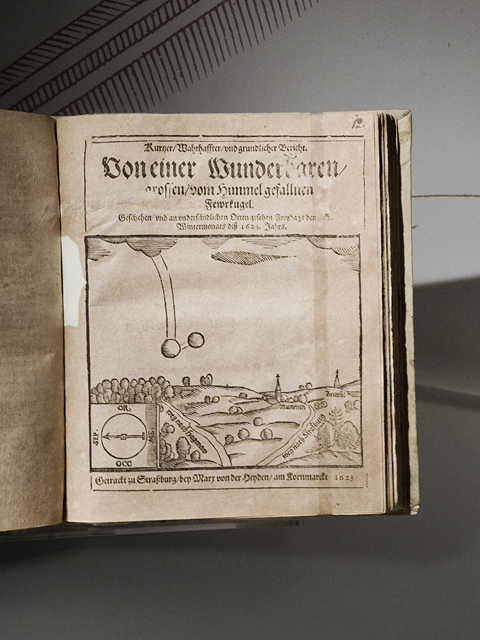 12
Kurtzer/Wahrhaffter/vnd grundlicher Bericht.
Von einer Wunderbaren/
grossen/vom Himmel gefallnen
Fewrkugel.
Geschehen/vnd an vnderschidlichen Orten gesehen Freytags den
Wintermonats diß 1623. Jahrs.
OR.
SEP.
OCC
Getruckt zu Straßburg/bey Marx von der Heyden/am Kornmarckt 1623